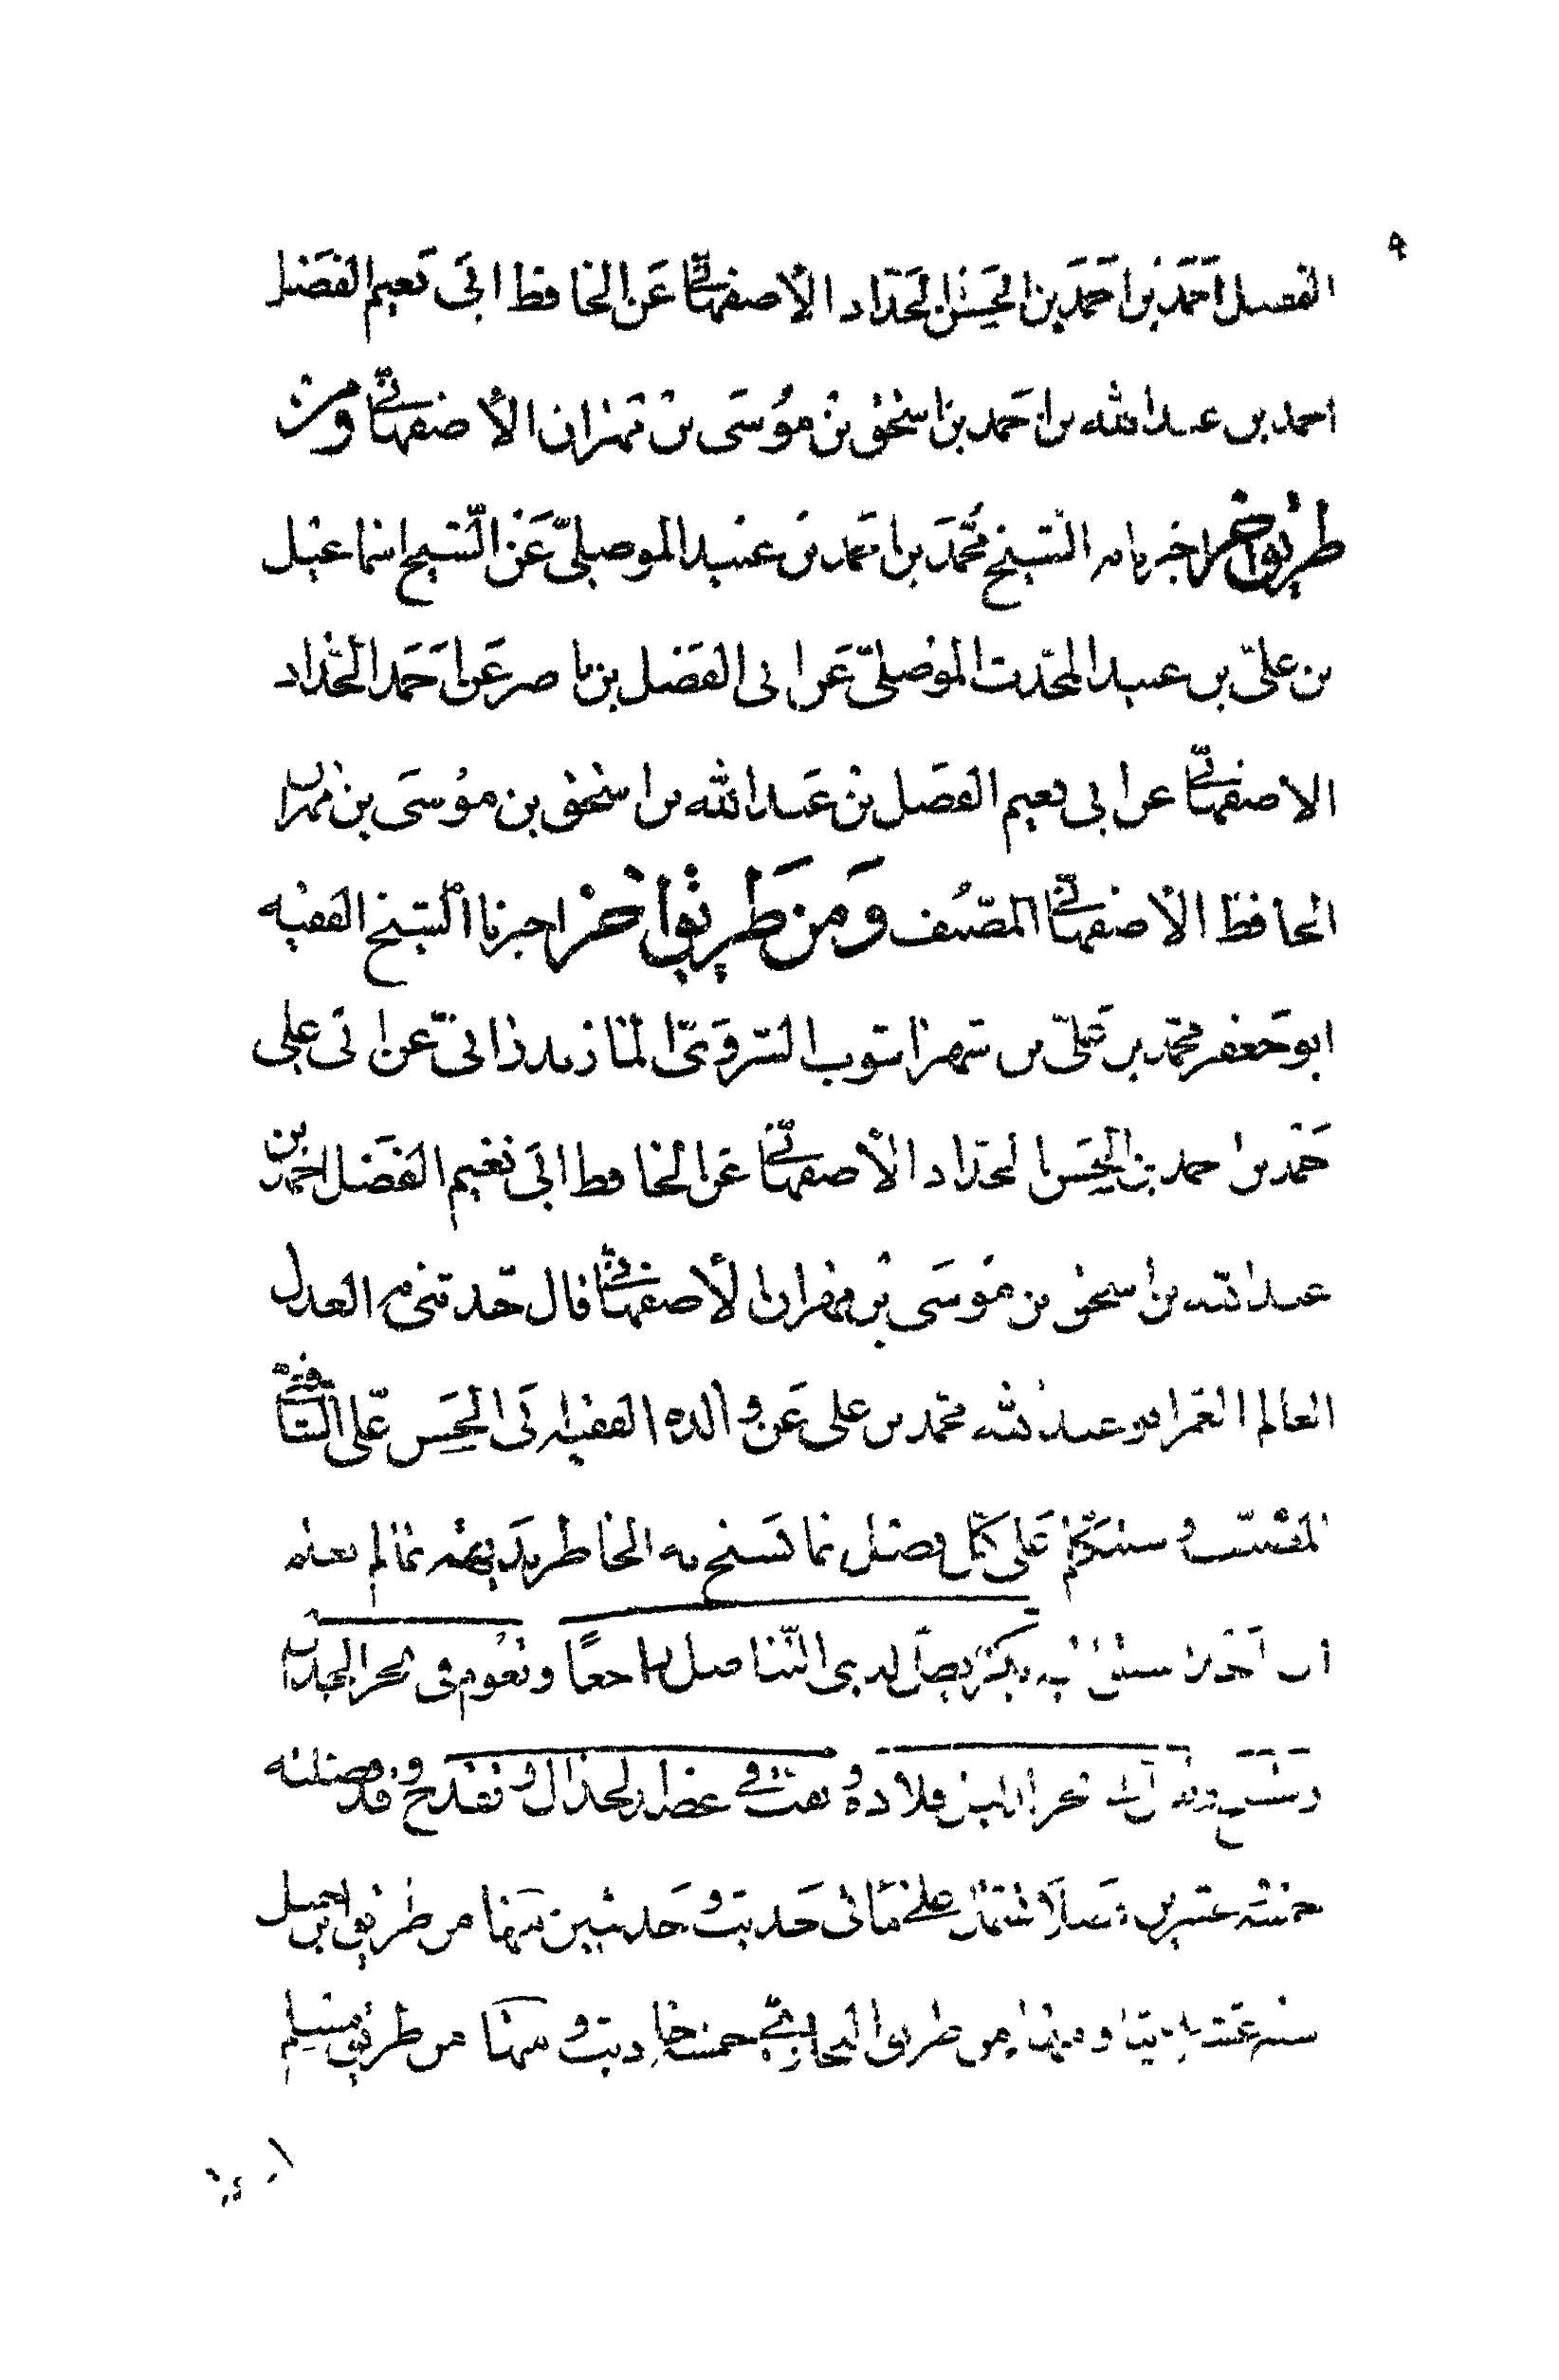 ٩
الفضل احمد بن احمد بن الحسن الحداد الاصفهاني عن الحافظ ابى نعيم الفضل
احمد بن عبد الله بن احمد بن اسحق بن موسى بن مهران الاصفهاني ومن
طريق اخر اخبرنا به الشيخ محمد بن احمد بن عبيد الموصلي عن الشيخ اسماعيل
بن علي بن عبيد المحدث الموصلي عن ابى الفضل بن ناصر عن احمد الحداد
الاصفهاني عن ابي نعيم الفضل بن عبد الله بن اسحق بن موسى بن مهران
الحافظ الاصفهاني المصنف ومن طريق اخر اخبرنا الشيخ الفقيه
ابو جعفر محمد بن علي بن شهراشوب السروي المازندراني عن ابى على
حمد بن احمد بن الحسن الحداد الاصفهاني عن الحافظ ابى نعيم الفضل احمد بن
عبد الله بن اسحق بن موسى بن مهران الاصفهاني قال حدثني م العدل
العالم المعمر ابو عبد الله محمد بن على عن والده الفقيه ابى الحسن على الشافعي
وسنتكلم على كل فصل بما يسنح به الخاطر بديهة
لدى التناضل راجعا ونعوم فى بحر الجدل
قلادة في الجدال ونقدح وقد فصلته
خمسة عشرين فصلا تشتمل على مائى حديث وحديثين منها من طريق ابن حنبل
ستة عشر حديثا ومنها من طريق البخاري خمسة احاديث ومنها من طريق مسلم